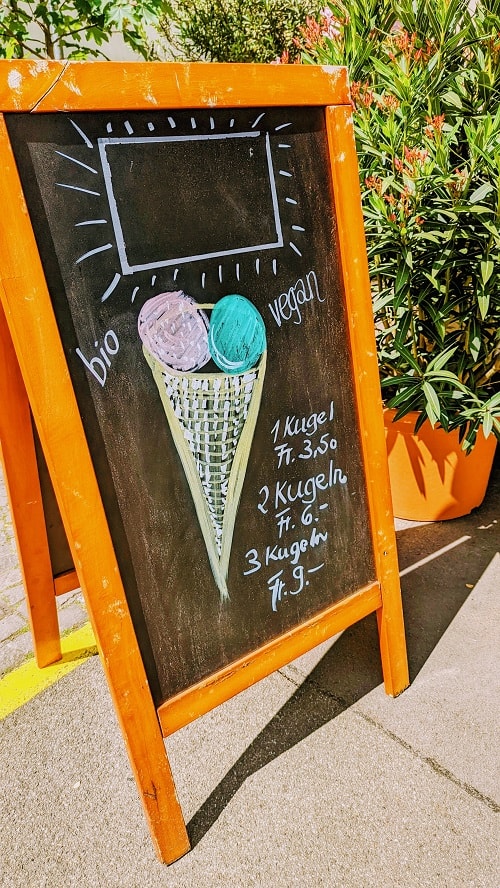 bio
vegan
1 Kugel
Fr. 3.50
2 Kugeln
Fr. 6.-
3 Kugeln
Fr. 9.-